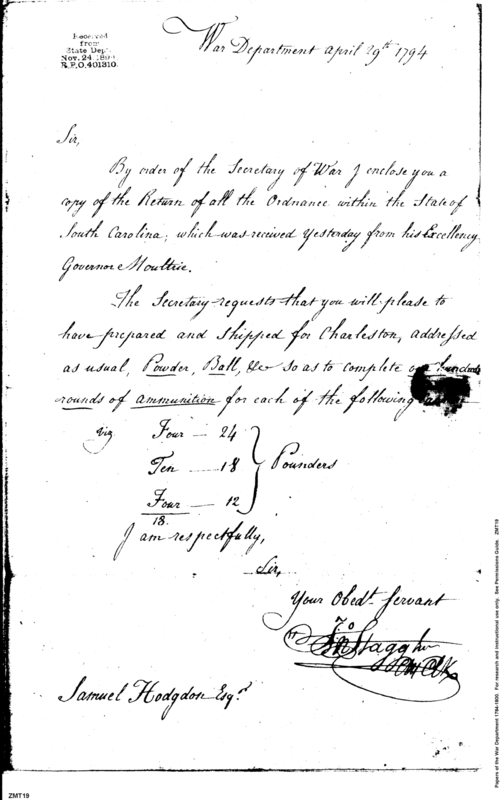 Received
from
State Dept.
Nov. 24 189
R.P.O. 401310.
War Department April 29th 1794
Sir,
By order of the Secretary of War I enclose you a
copy of the Return of all the Ordnance within the State of
South Carolina; which was received yesterday from his Excellency
Governor Moultrie.
The Secretary requests that you will please to
have prepared and shipped for Charleston, addressed
as usual, Powder, Ball, &c so as to complete hundred
rounds of ammunition for each of the following
viz Four — 24
Ten — 18 } Pounders
Four — 12
18.
I am respectfully,
Sir,
Your Obedt. Servant
Jno Stagg Junr
Ch Clk
Samuel Hodgdon Esqr
ZMT19
Papers of the War Department 1784-1800. For research and instructional use only. See Permissions Guide. ZMT19